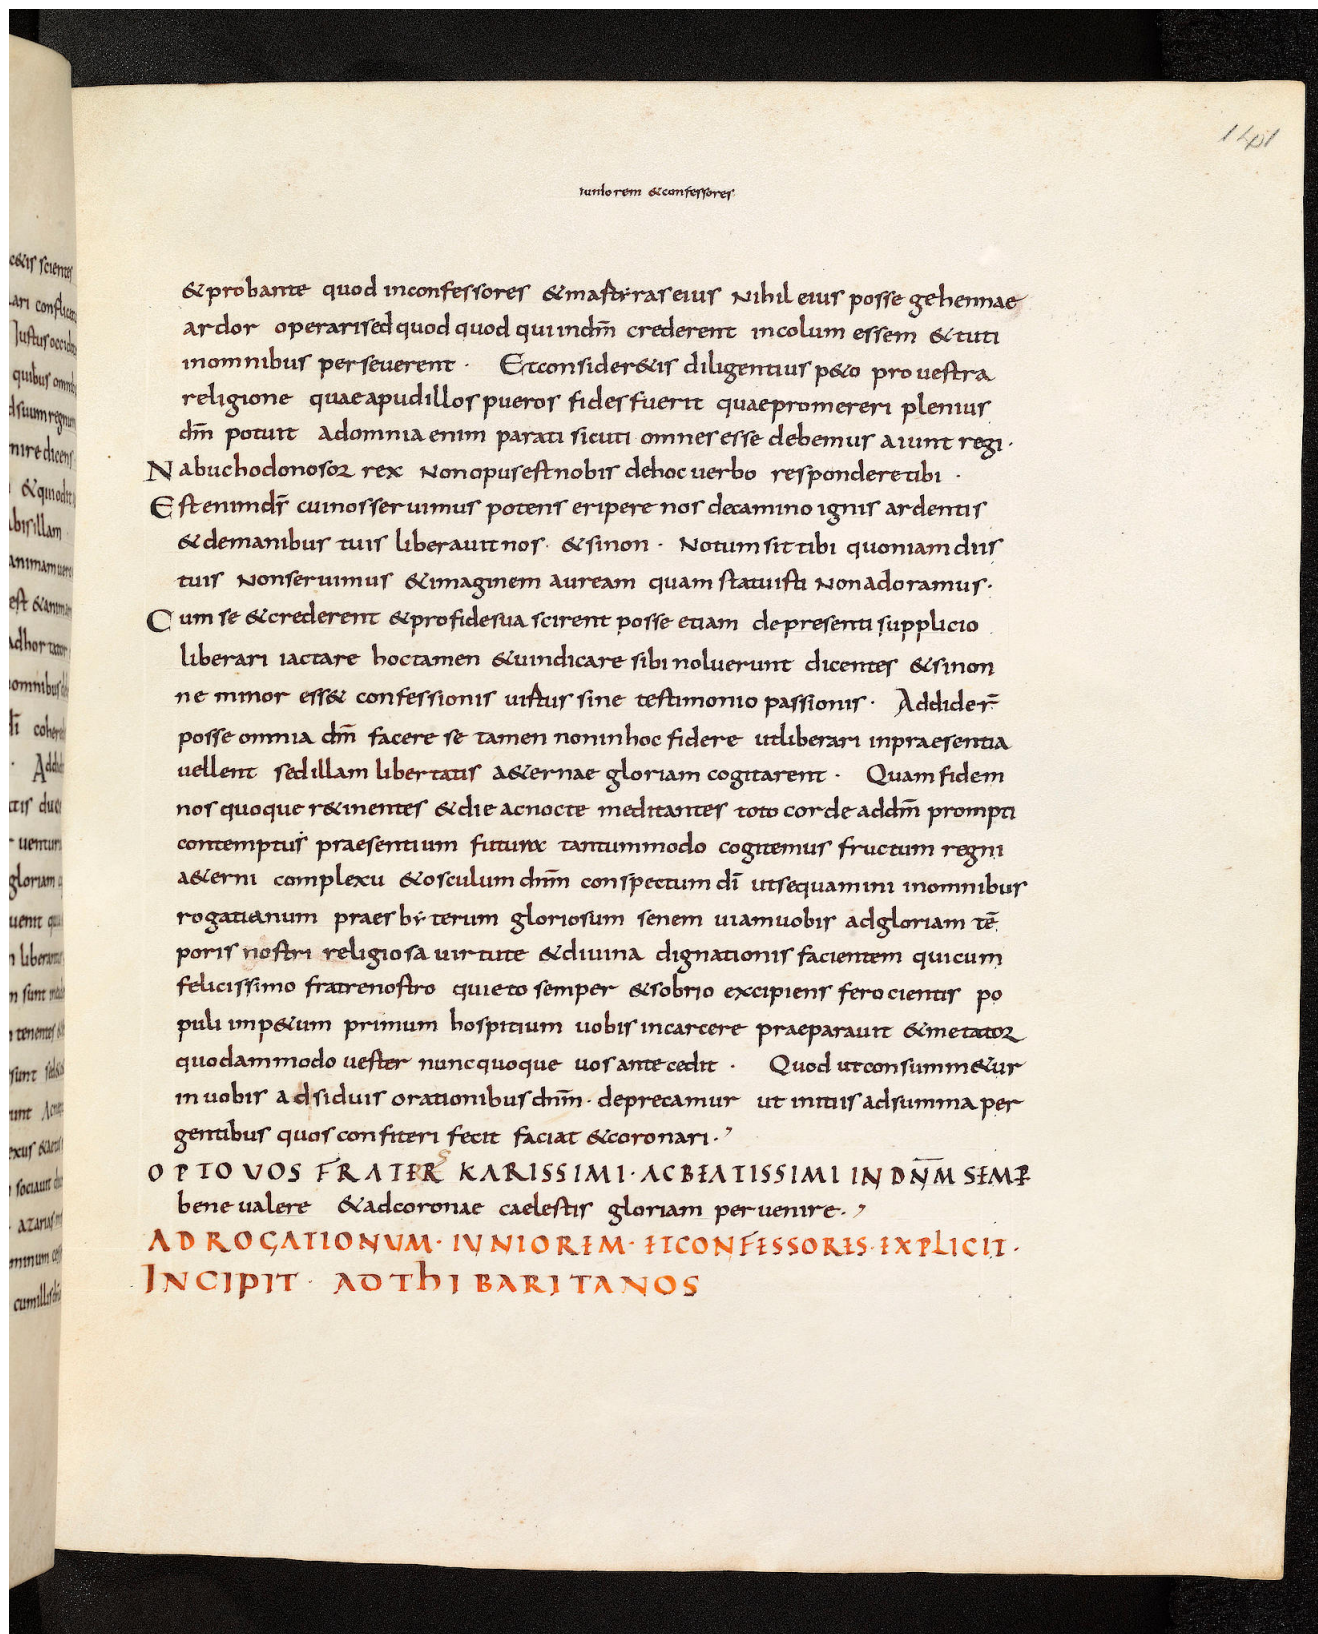 141
iuniorem &confessores
&probante quod inconfessores &mastyras eius Nihil eius posse gehennae
ardor operari sed quod quod qui indm̄ crederent incolum essem &tuti
inomnibus perseuerent · Etconsider&is diligentius p&o pro uestra
religione quae apudillos pueros fides fuerit quae promereri plenius
dm̄ potuit Adomnia enim parati sicuti omnes esse debemus aiunt regi ·
Nabuchodonosor rex Non opus est nobis de hoc uerbo respondere tibi ·
Est enim dr̄ cui nos seruimus potens eripere nos decamino ignis ardentis
&demanibus tuis liberauit nos · &sinon · Notum sit tibi quoniam diis
tuis Nonseruimus &imaginem auream quam statuisti Nonadoramus ·
Cum se &crederent &profidesua scirent posse etiam depresenti supplicio
liberari iactare hoctamen &uindicare sibi noluerunt dicentes &sinon
ne minor ess& confessionis uistus sine testimonio passionis · Addider̄
posse omnia dm̄ facere se tamen noninhoc fidere utliberari inpraesentia
uellent sedillam libertatis a&ernae gloriam cogitarent · Quam fidem
nos quoque r&inentes &die ac nocte meditantes toto corde addm̄ prompti
contemptus praesentium tantummodo cogitemus fructum regni
a&erni complexu &osculum dnm̄ conspectum dī utsequamini inomnibus
rogatianum praesbyterum gloriosum senem uiamuobis adgloriam tē
poris nostri religiosa uirtute &diuina dignationis facientem quicum
felicissimo fratrenostro quieto semper &sobrio excipiens ferocientis po
puli imp&um primum hospitium uobis incarcere praeparauit &metator
quodammodo uester nuncquoque uos antecedit · Quod utconsumm&ur
in uobis adsiduis orationibus dnm̄ · deprecamur ut initiis adsumma per
gentibus quos confiteri fecit faciat &coronari ·
OPTO VOS FRATERS KARISSIMI · AC BEATISSIMI IN DNM̄ SEMP
bene ualere &adcoronae caelestis gloriam peruenire ·
AD ROGATIONUM · IUNIOREM · ETCONFESSORES · EXPLICIT ·
INCIPIT · AD THIBARITANOS